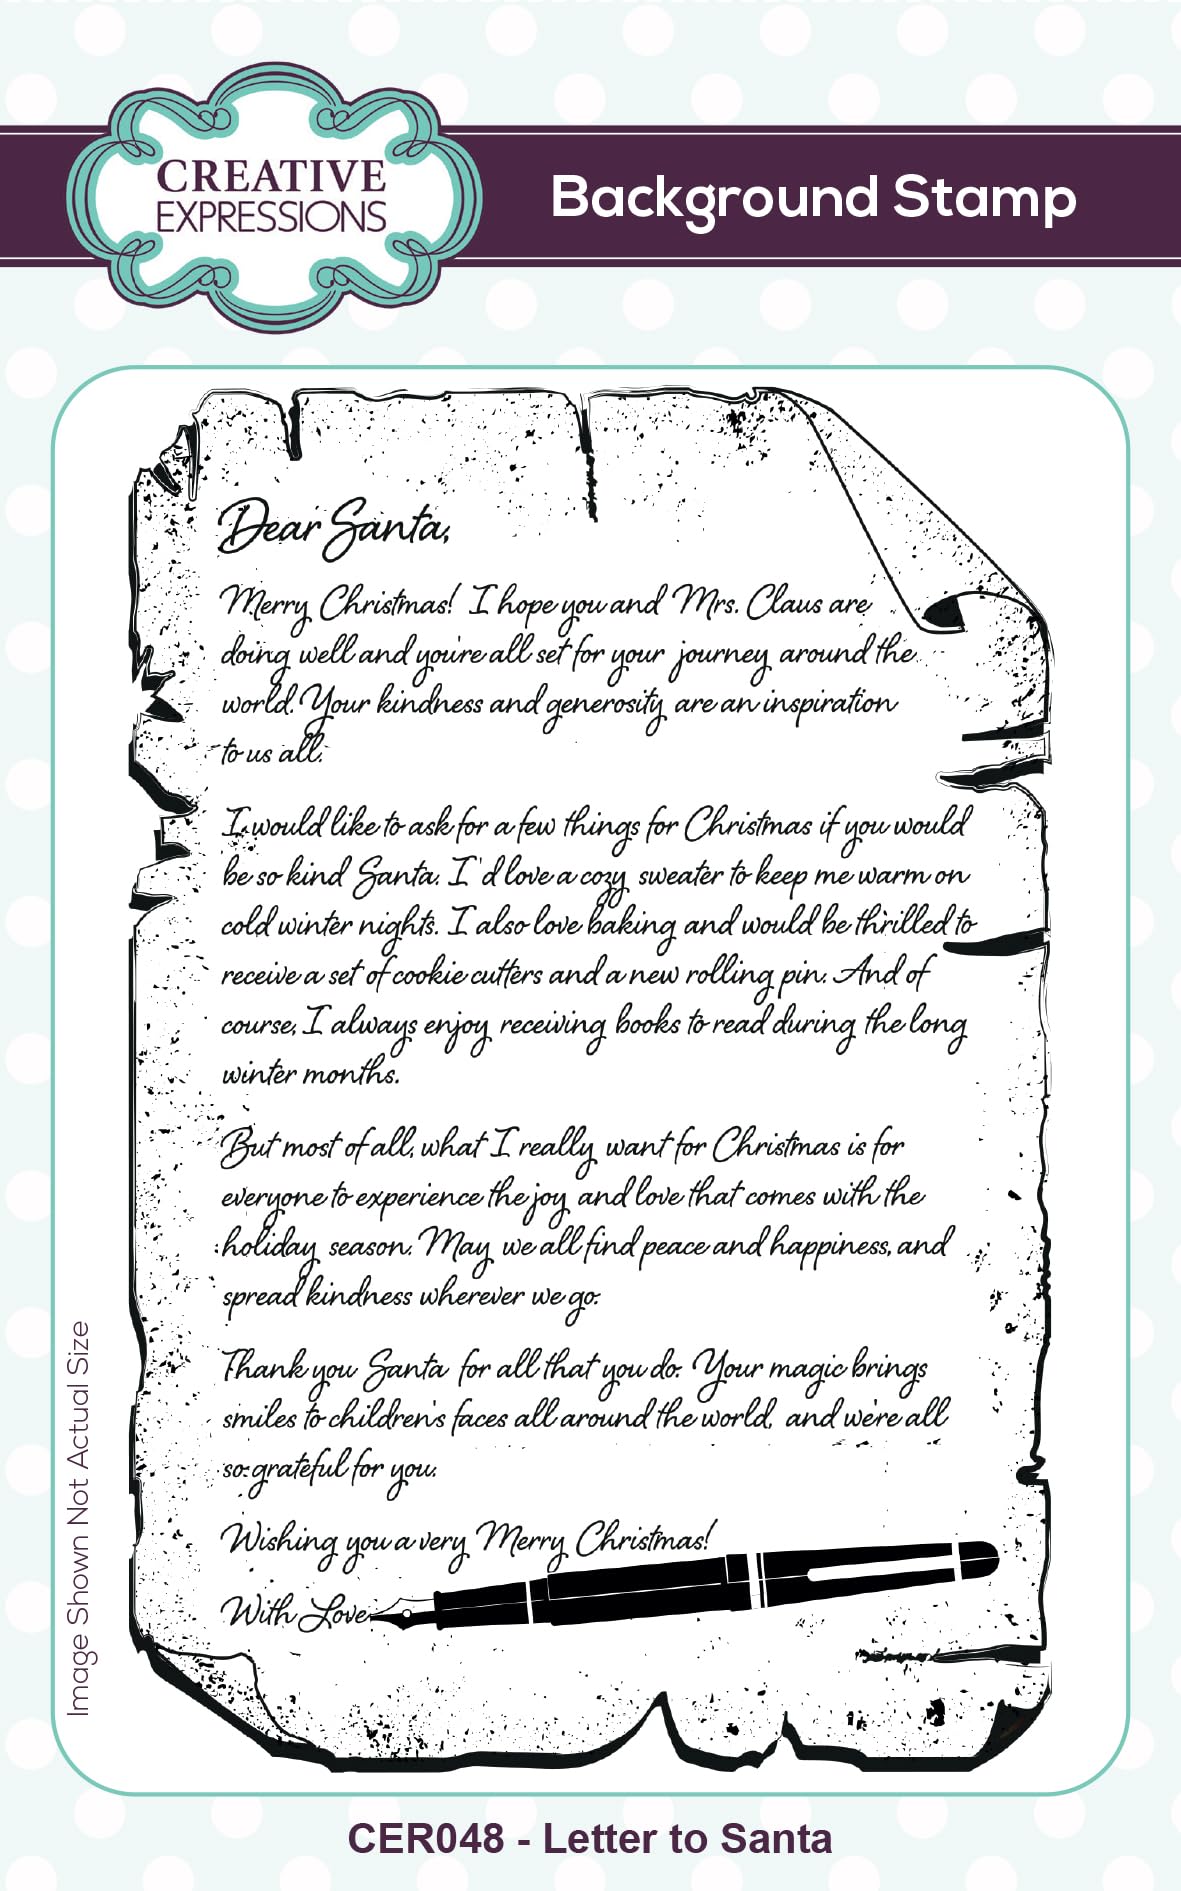 CREATIVE
EXPRESSIONS
Background Stamp
Dear Santa,
Merry Christmas! I hope you and Mrs. Claus are
doing well and you're all set for your journey around the
world. Your kindness and generosity are an inspiration
to us all.
I would like to ask for a few things for Christmas if you would
be so kind Santa. I'd love a cozy sweater to keep me warm on
cold winter nights. I also love baking and would be thrilled to
receive a set of cookie cutters and a new rolling pin. And of
course, I always enjoy receiving books to read during the long
winter months.
But most of all, what I really want for Christmas is for
everyone to experience the joy and love that comes with the
holiday season. May we all find peace and happiness, and
spread kindness wherever we go.
Thank you Santa for all that you do. Your magic brings
smiles to children's faces all around the world, and we're all
so grateful for you.
Wishing you a very Merry Christmas!
With Love
Image Shown Not Actual Size
CER048 - Letter to Santa